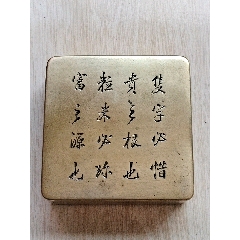 隻字必惜
貴之根也
粒米必珍
富之源也